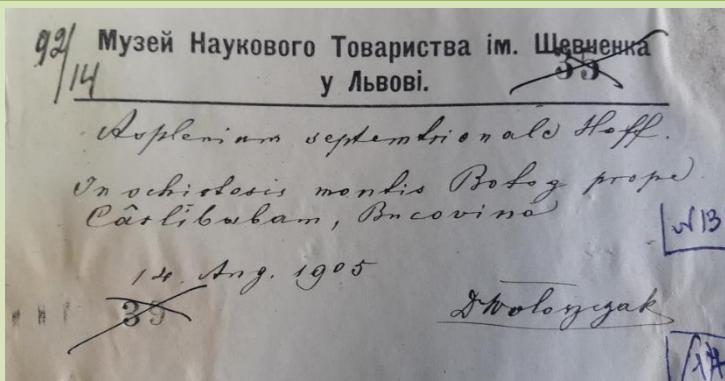 92/14
Музей Наукового Товариства ім. Шевченка
35
у Львові.
Asplenium septemtrionale Hoff.
In schistosis montis Botog prope
Cârlibabam, Bucovina
N 13
14. Aug. 1905
39
DWoloszczak